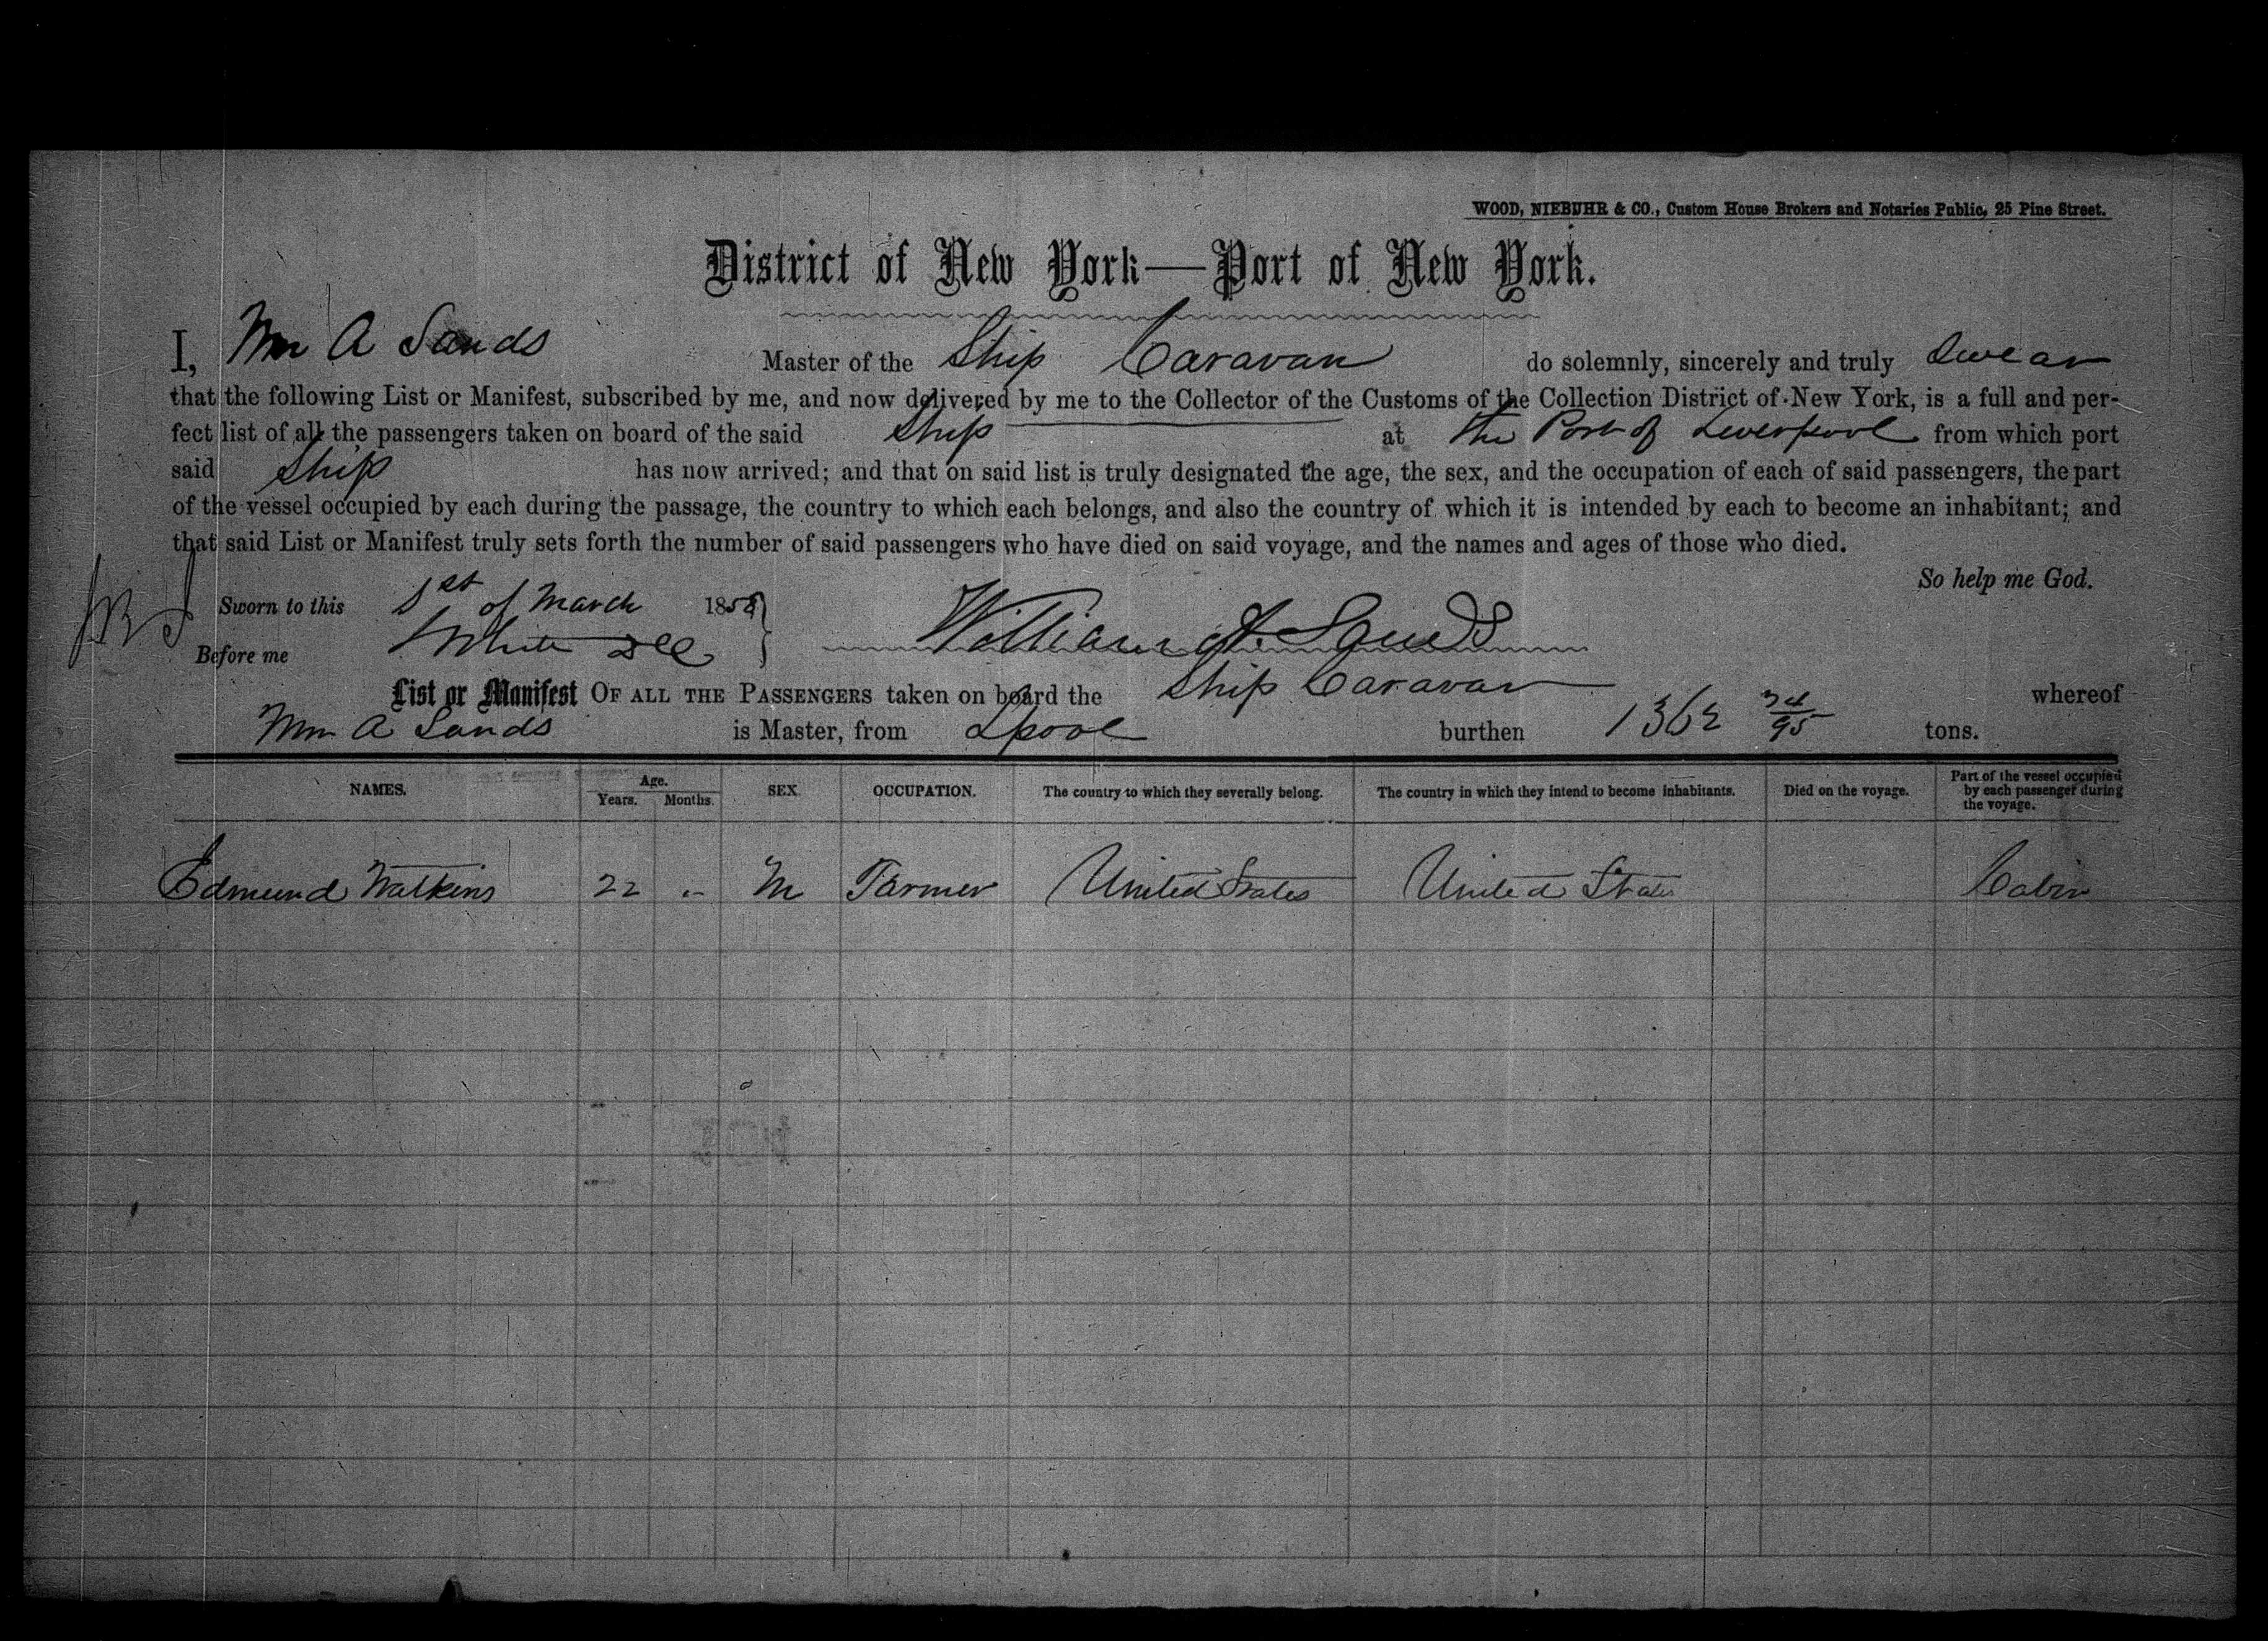 WOOD, NIEBUHR & CO., Custom House Brokers and Notaries Public, 25 Pine Street.
District of New York—Port of New York.
I, Wm A Sands Master of the Ship Caravan do solemnly, sincerely and truly Swear
that the following List or Manifest, subscribed by me, and now delivered by me to the Collector of the Customs of the Collection District of New York, is a full and per-
fect list of all the passengers taken on board of the said Ship at the Port of Liverpool from which port
said Ship has now arrived; and that on said list is truly designated the age, the sex, and the occupation of each of said passengers, the part
of the vessel occupied by each during the passage, the country to which each belongs, and also the country of which it is intended by each to become an inhabitant; and
that said List or Manifest truly sets forth the number of said passengers who have died on said voyage, and the names and ages of those who died.
So help me God.
Sworn to this 1st of March 1858
Before me White
William A. Sands
List or Manifest OF ALL THE PASSENGERS taken on board the Ship Caravan whereof
Wm A Sands is Master, from Lpool burthen 1362 34/95 tons.
NAMES. Age. Years. Months. SEX OCCUPATION. The country to which they severally belong. The country in which they intend to become inhabitants. Died on the voyage. Part of the vessel occupied by each passenger during the voyage.
Edmund Watkins 22 M Farmer United States United States Cabin